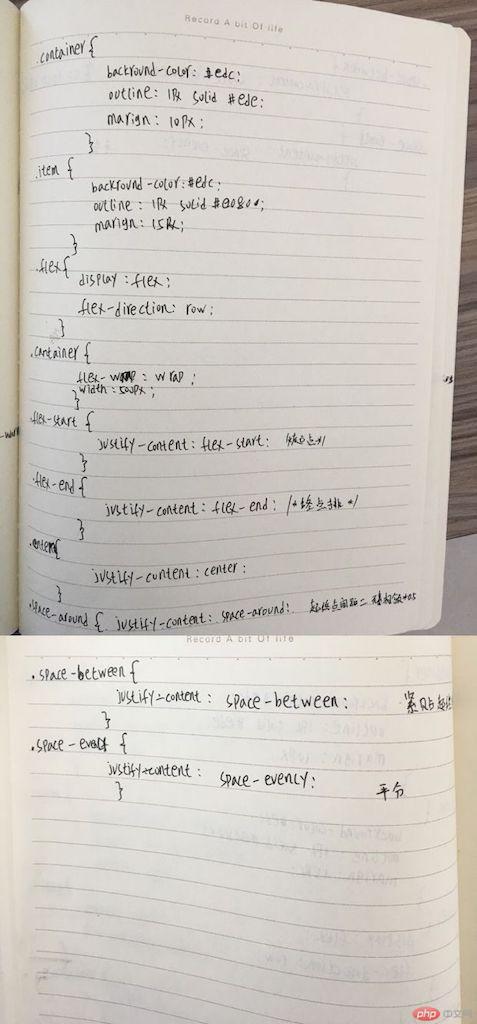 Record A bit Of life
.container {
backround-color: #edc;
outline: 1Px solid #ede;
marign: 10Px;
}
.item {
backround-color: #edc;
outline: 1Px solid
marign: 15Px;
}
.flex{
display: flex;
flex-direction: row;
}
.container {
flex-wrap: wrap;
width: 500px;
}
.flex-start {
justify-content: flex-start:
}
.flex-end {
justify-content: flex-end: /*终点排*/
}
justify-content: center:
}
.space-around { justify-content: space-around:
Record A bit Of life
.space-between {
justify-content: space-between:
}
{
justify-content: space-evenly: 平分
}
php 中文网